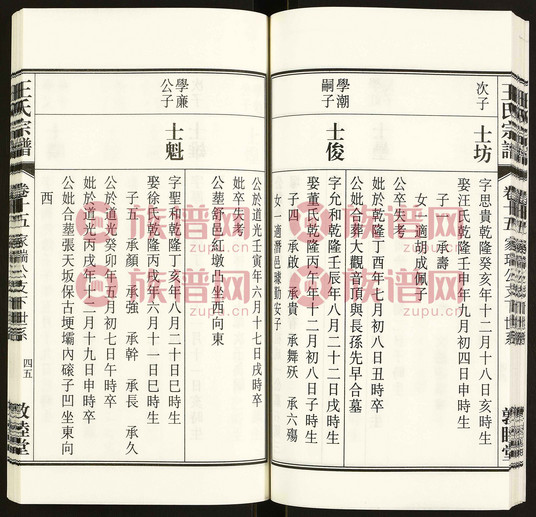 王氏宗譜
次子
士坊
字思貴乾隆癸亥年十二月十八日亥時生
娶汪氏乾隆壬申年九月初四日申時生
子一 承壽
女一 適胡成佩子
公卒失考
妣於乾隆丁酉年七月初八日丑時卒
公妣合葬大觀音頂與長孫先早合墓
學潮
嗣子
士俊
字允和乾隆壬辰年八月二十二日戌時生
娶董氏乾隆丙午年十二月初八日子時生
子四 承啟 承貴 承舞殀 承六殤
女一適潛邑
公於道光壬寅年六月十七日戌時卒
妣卒失考
公塟舒邑紅墩凸坐西向東
學廉
公子
士魁
字聖和乾隆丁亥年八月二十日巳時生
娶徐氏乾隆丙戌年六月十一日巳時生
子五 承顏 承強 承幹 承長 承久
公於道光癸卯年五月初七日午時卒
妣於道光丙戌年十二月十九日申時卒
公妣合塟張天坂保古埂壩內磙子凹坐東向
西
王氏宗譜
卷十五
四五
敦睦堂
族谱网
zupu.cn